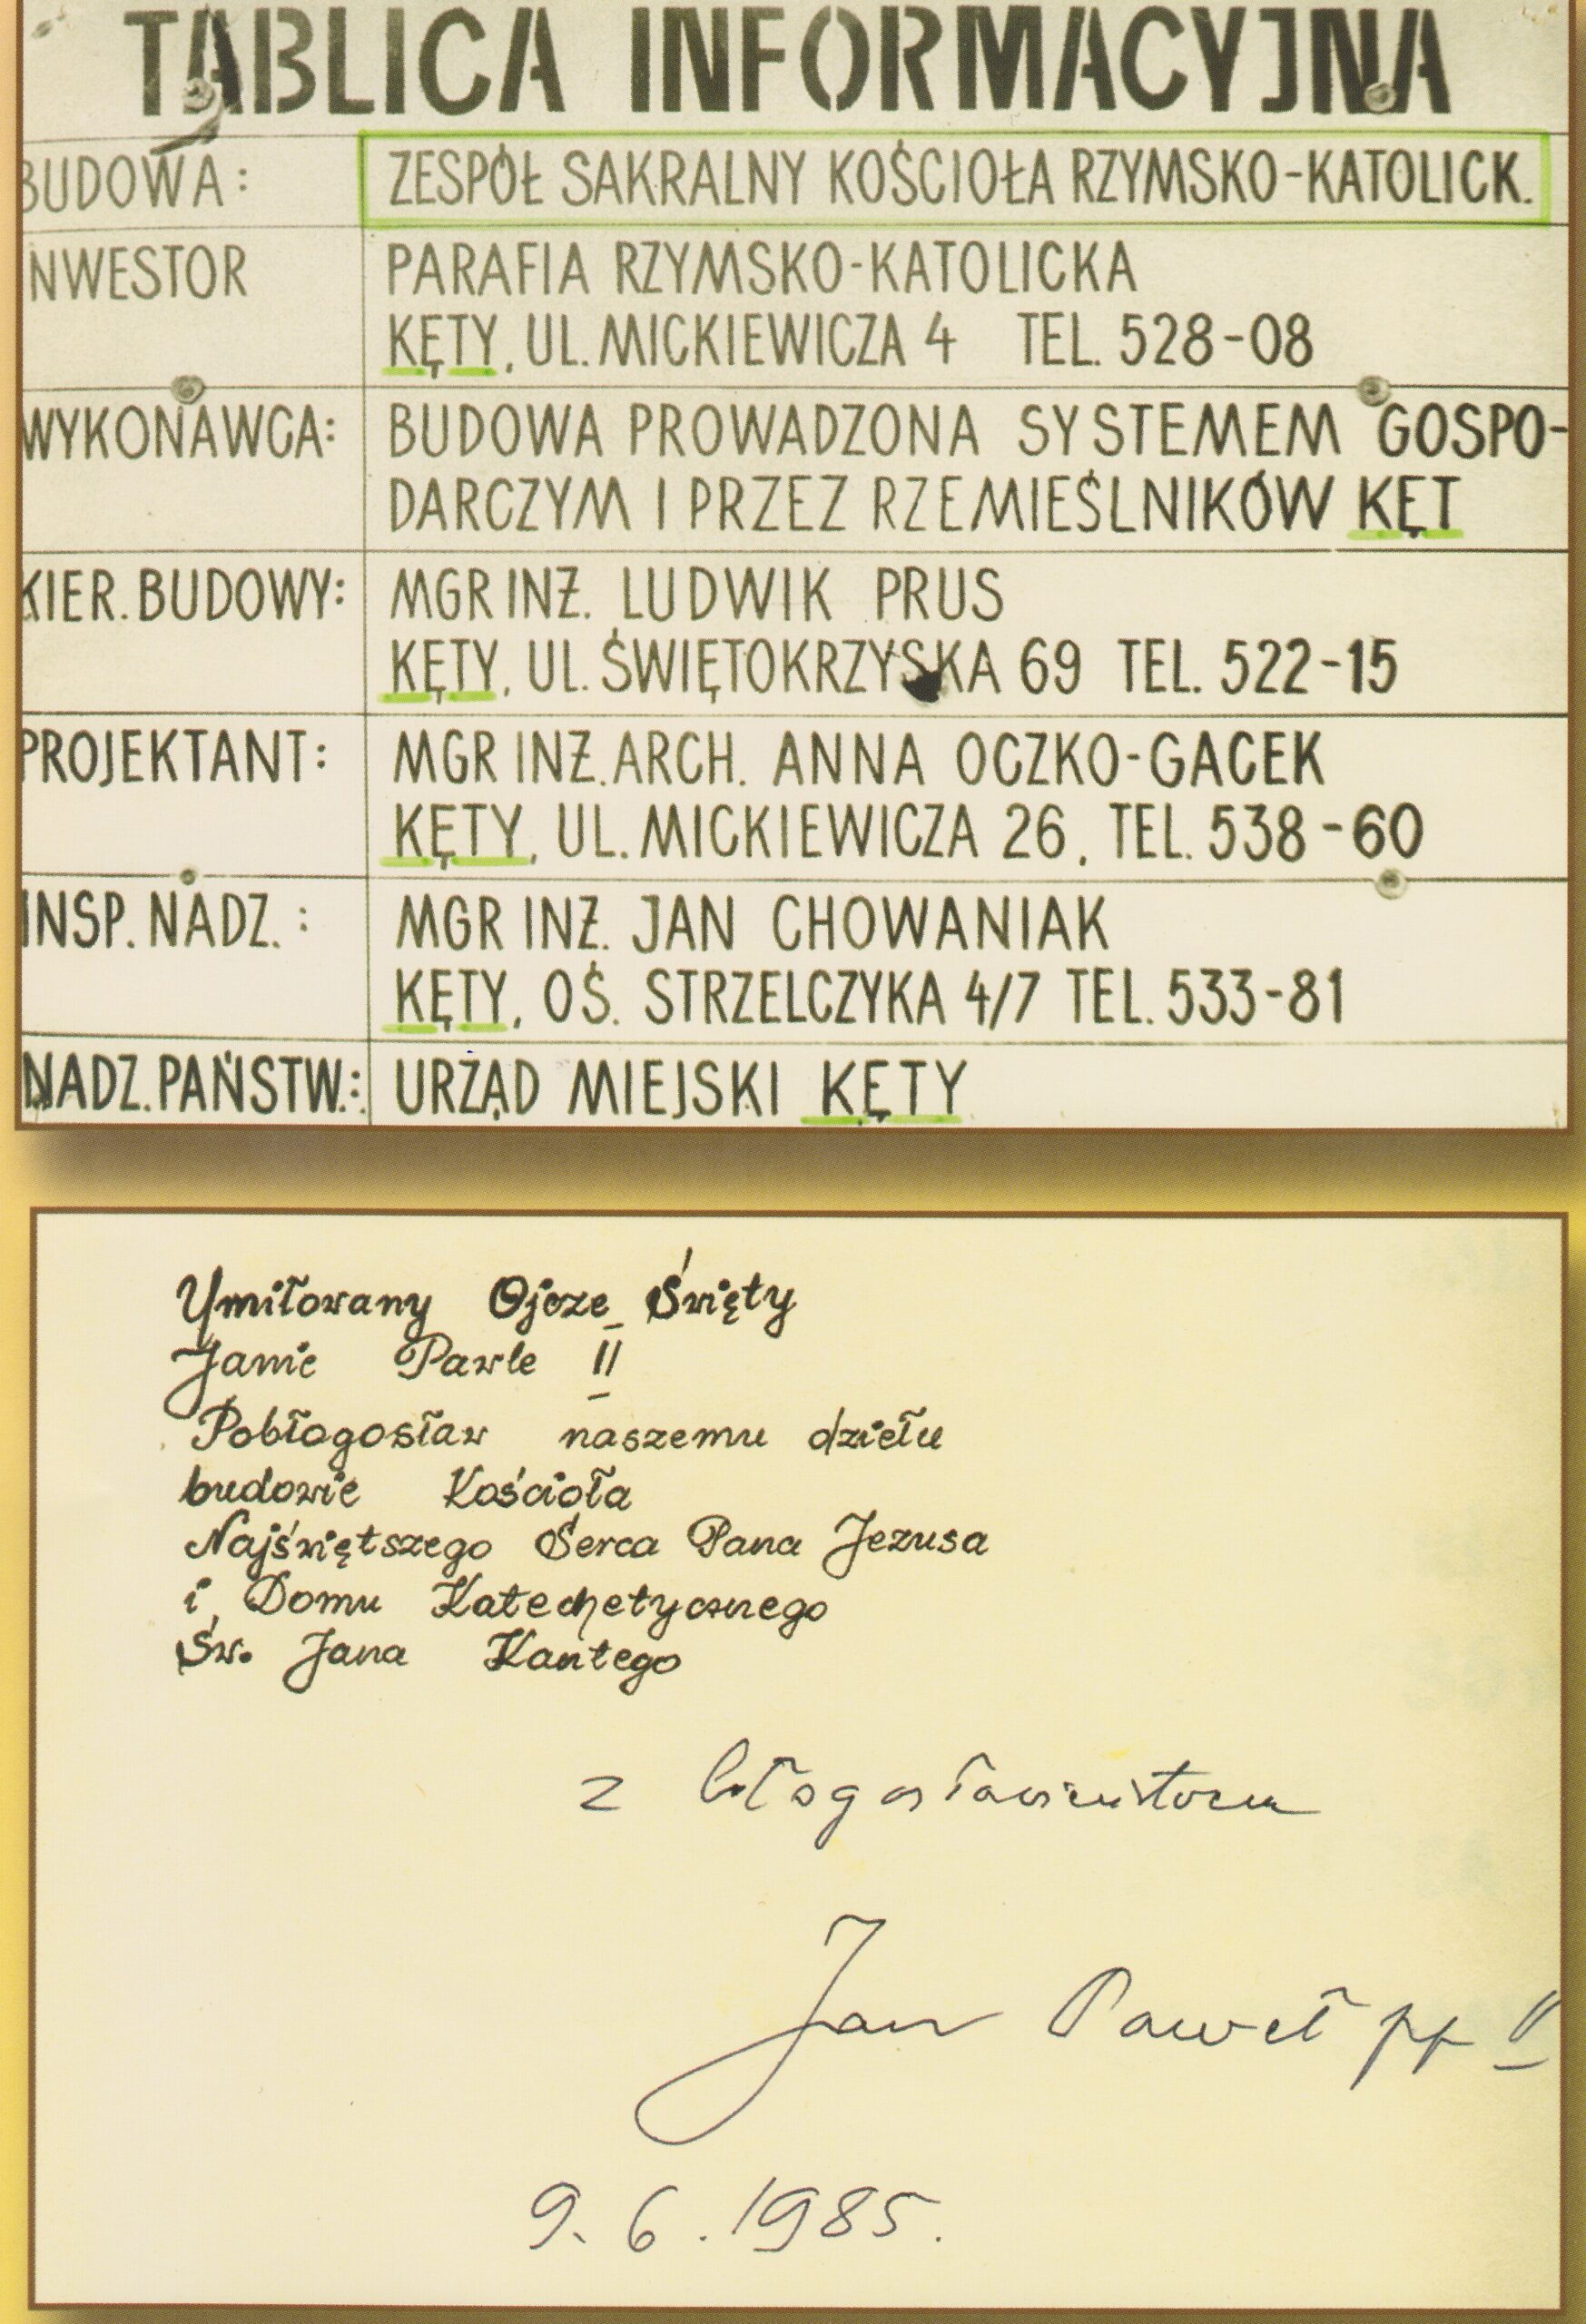 TABLICA INFORMACYJNA
BUDOWA: ZESPÓŁ SAKRALNY KOŚCIOŁA RZYMSKO-KATOLICK.
INWESTOR PARAFIA RZYMSKO-KATOLICKA
KĘTY, UL. MICKIEWICZA 4 TEL. 528-08
WYKONAWCA: BUDOWA PROWADZONA SYSTEMEM GOSPO-
DARCZYM I PRZEZ RZEMIEŚLNIKÓW KĘT
KIER. BUDOWY: MGR INŻ. LUDWIK PRUS
KĘTY, UL. ŚWIĘTOKRZYSKA 69 TEL. 522-15
PROJEKTANT: MGR INŻ. ARCH. ANNA OCZKO-GACEK
KĘTY, UL. MICKIEWICZA 26, TEL. 538-60
INSP. NADZ.: MGR INŻ. JAN CHOWANIAK
KĘTY, OŚ. STRZELCZYKA 4/7 TEL. 533-81
NADZ. PAŃSTW.: URZĄD MIEJSKI KĘTY
Umiłowany Ojcze Święty
Janie Pawle II
Pobłogosław naszemu dziełu
budowie Kościoła
Najświętszego Serca Pana Jezusa
i Domu Katechetycznego
Św. Jana Kantego
z błogosławieństwem
Jan Paweł pp II
9.6.1985.